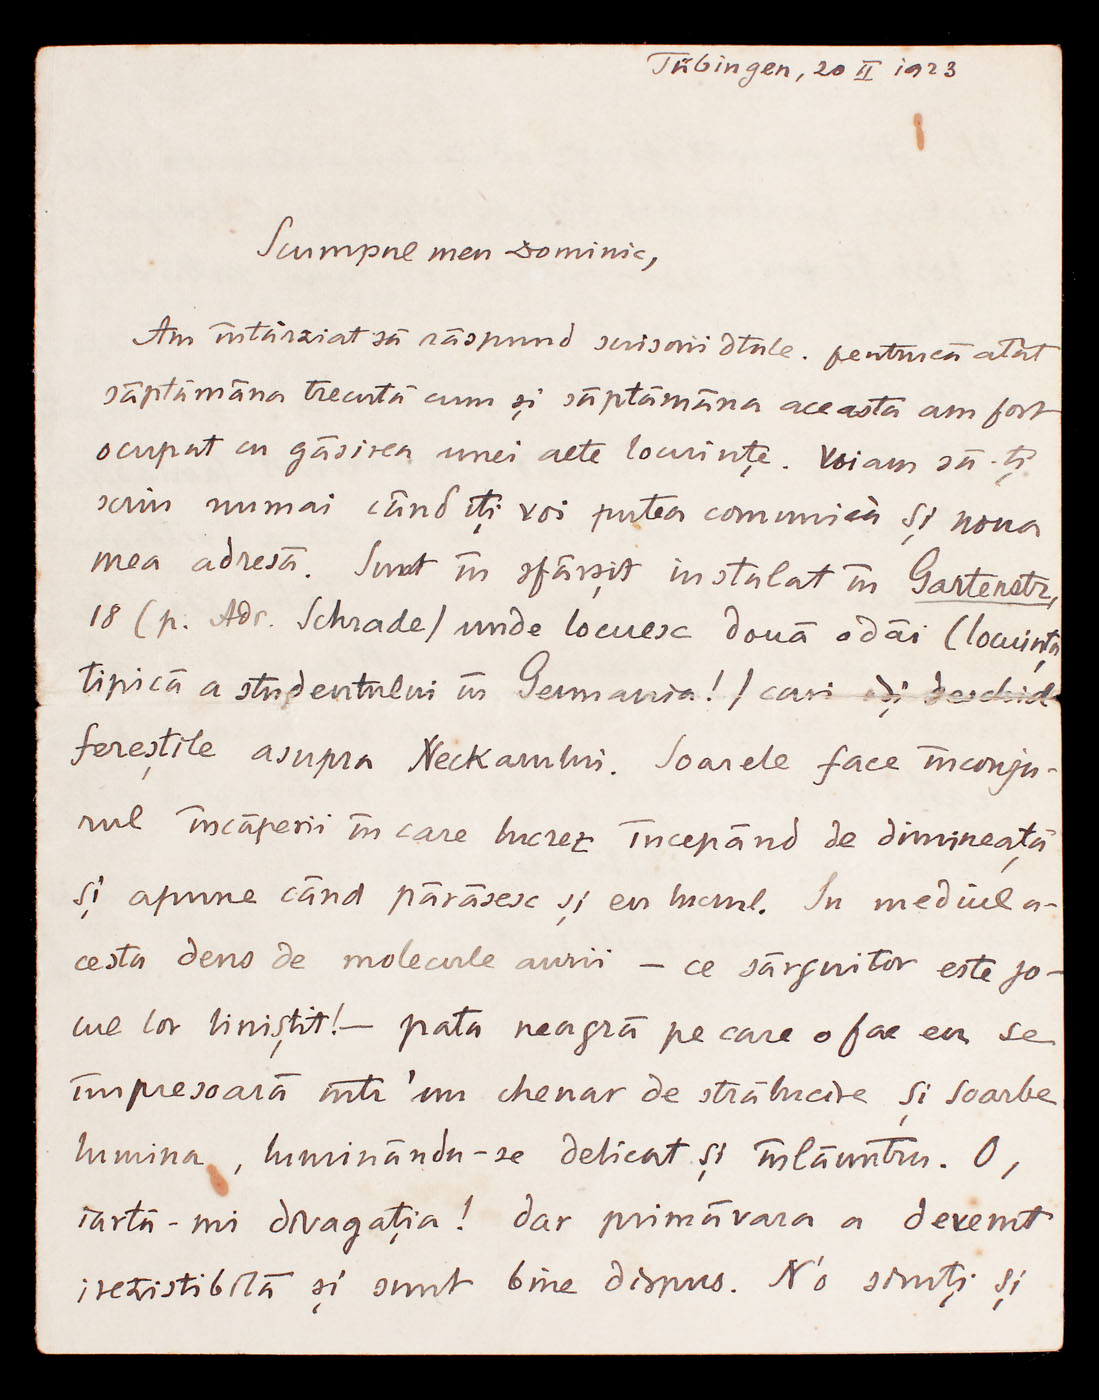 Tübingen, 20 II 1923
Scumpul meu Dominic,
Am întârziat să răspund scrisorii dtale. pentrucă atât
săptămâna trecută cum și săptămâna aceasta am fost
ocupat cu găsirea unei alte locuințe. Voiam să-ți
scriu numai când îți voi putea comunica și noua
mea adresă. Sunt în sfârșit instalat în Gartenstr,
18 (p. Adr. Schrade) unde locuesc două odăi (locuința
tipică a studentului în Germania!) cari își deschid
fereștile asupra Neckarului. Soarele face înconju-
rul încăperii în care lucrez începând de dimineață
și apune când părăsesc și eu lucrul. In mediul a-
cesta dens de molecule aurii – ce sârguitor este jo-
cul lor liniștit! – pata neagră pe care o fac eu se
împresoară într'un chenar de strălucire și soarbe
lumina, luminându-se delicat și înlăuntru. O,
iartă-mi divagația! dar primăvara a devenit
irezistibilă și sunt bine dispus. N'o simți și